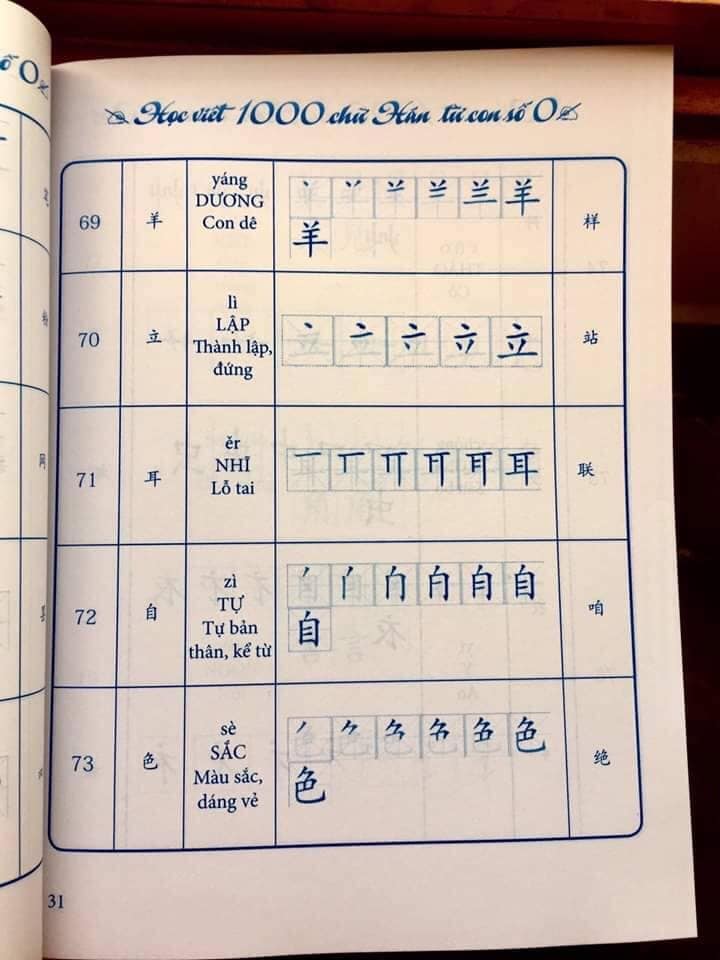 Học viết 1000 chữ Hán từ con số 0
69
羊
yáng
DƯƠNG
Con dê
丶 丷 䒑 兰 羊
羊
样
70
立
lì
LẬP
Thành lập,
đứng
立
站
71
耳
ěr
NHĨ
Lỗ tai
一 丅 耳
联
72
自
zì
TỰ
Tự bản
thân, kể từ
自
自
咱
73
色
sè
SẮC
Màu sắc,
dáng vẻ
色
色
绝
31